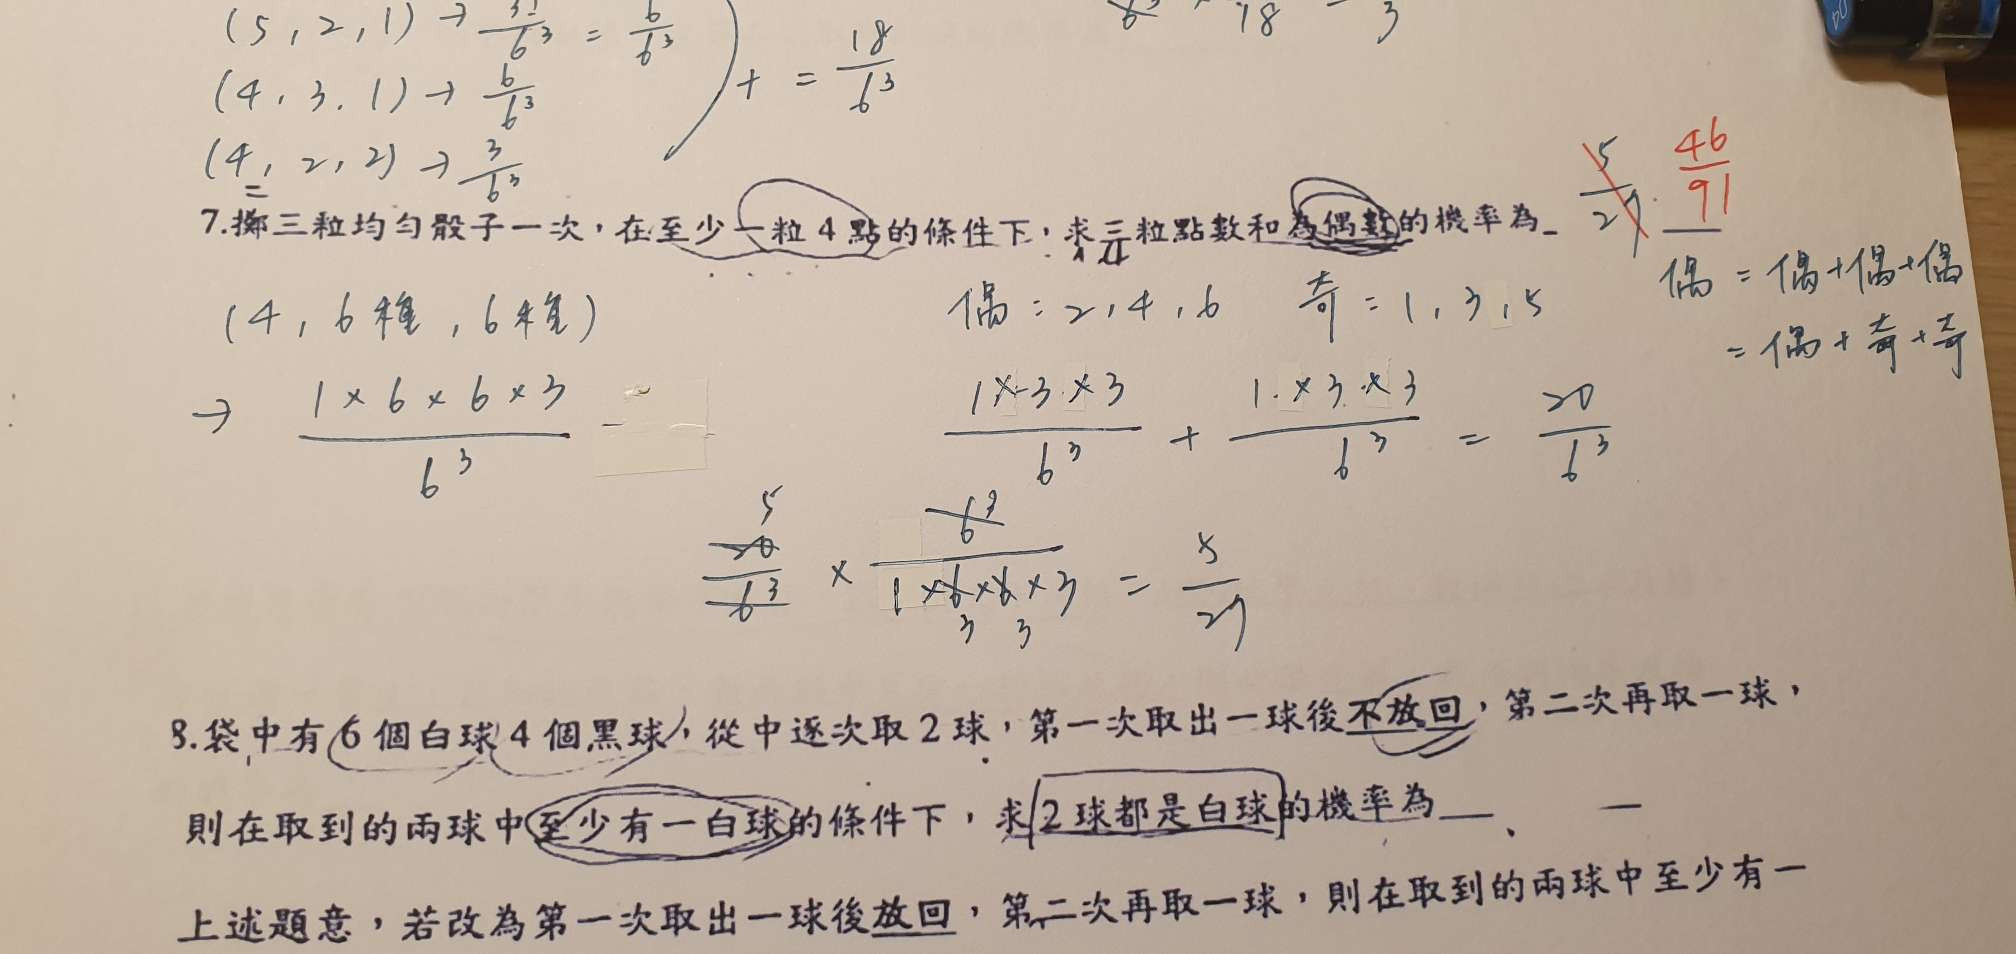 (5,2,1) → 3!/6³ = 6/6³
(4,3,1) → 6/6³
+ = 18/6³
(4,2,2) → 3/6³
18
3
7.擲三粒均勻骰子一次，在至少一粒4點的條件下，求三粒點數和為偶數的機率為
5/27
46/91
(4,6種,6種)
偶=2,4,6 奇=1,3,5
偶=偶+偶+偶
=偶+奇+奇
→ 1×6×6×3/6³
1×3×3/6³ + 1×3×3/6³ = 20/6³
5
20/6³ × 6³/1×6×6×3 = 5/27
3 3
8.袋中有6個白球4個黑球，從中逐次取2球，第一次取出一球後不放回，第二次再取一球，
則在取到的兩球中至少有一白球的條件下，求2球都是白球的機率為
上述題意，若改為第一次取出一球後放回，第二次再取一球，則在取到的兩球中至少有一